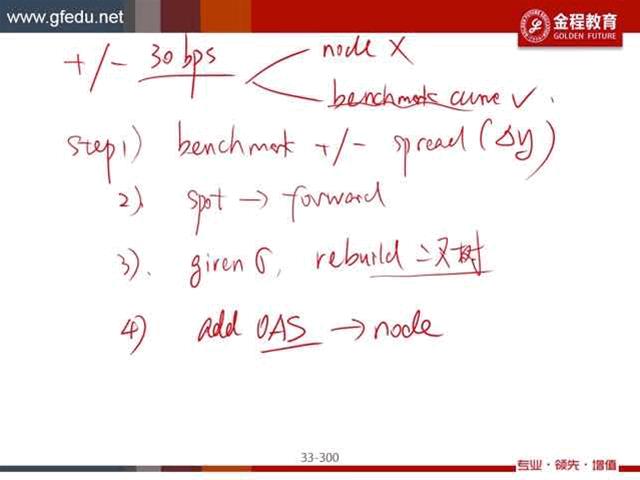 www.gfedu.net
金程教育
GOLDEN FUTURE
+/- 30 bps
node X
benchmark curve ✓.
Step1) benchmark +/- spread (Δy)
2). spot → forward
3). given σ, rebuild 二叉树
4) add OAS → node
33-300
专业·领先·增值